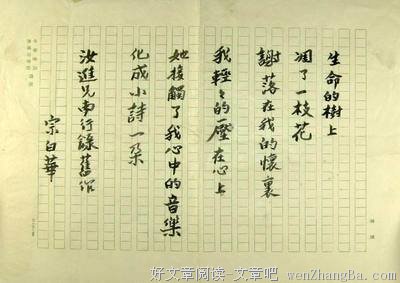 生命的樹上
凋了一枝花
謝落在我的懷裏
我輕々的壓在心上
她接觸了我心中的音樂
化成小詩一朶
汝進兄南行錄舊作
宗白華
好文章阅读-文章吧-wenZhangBa.com